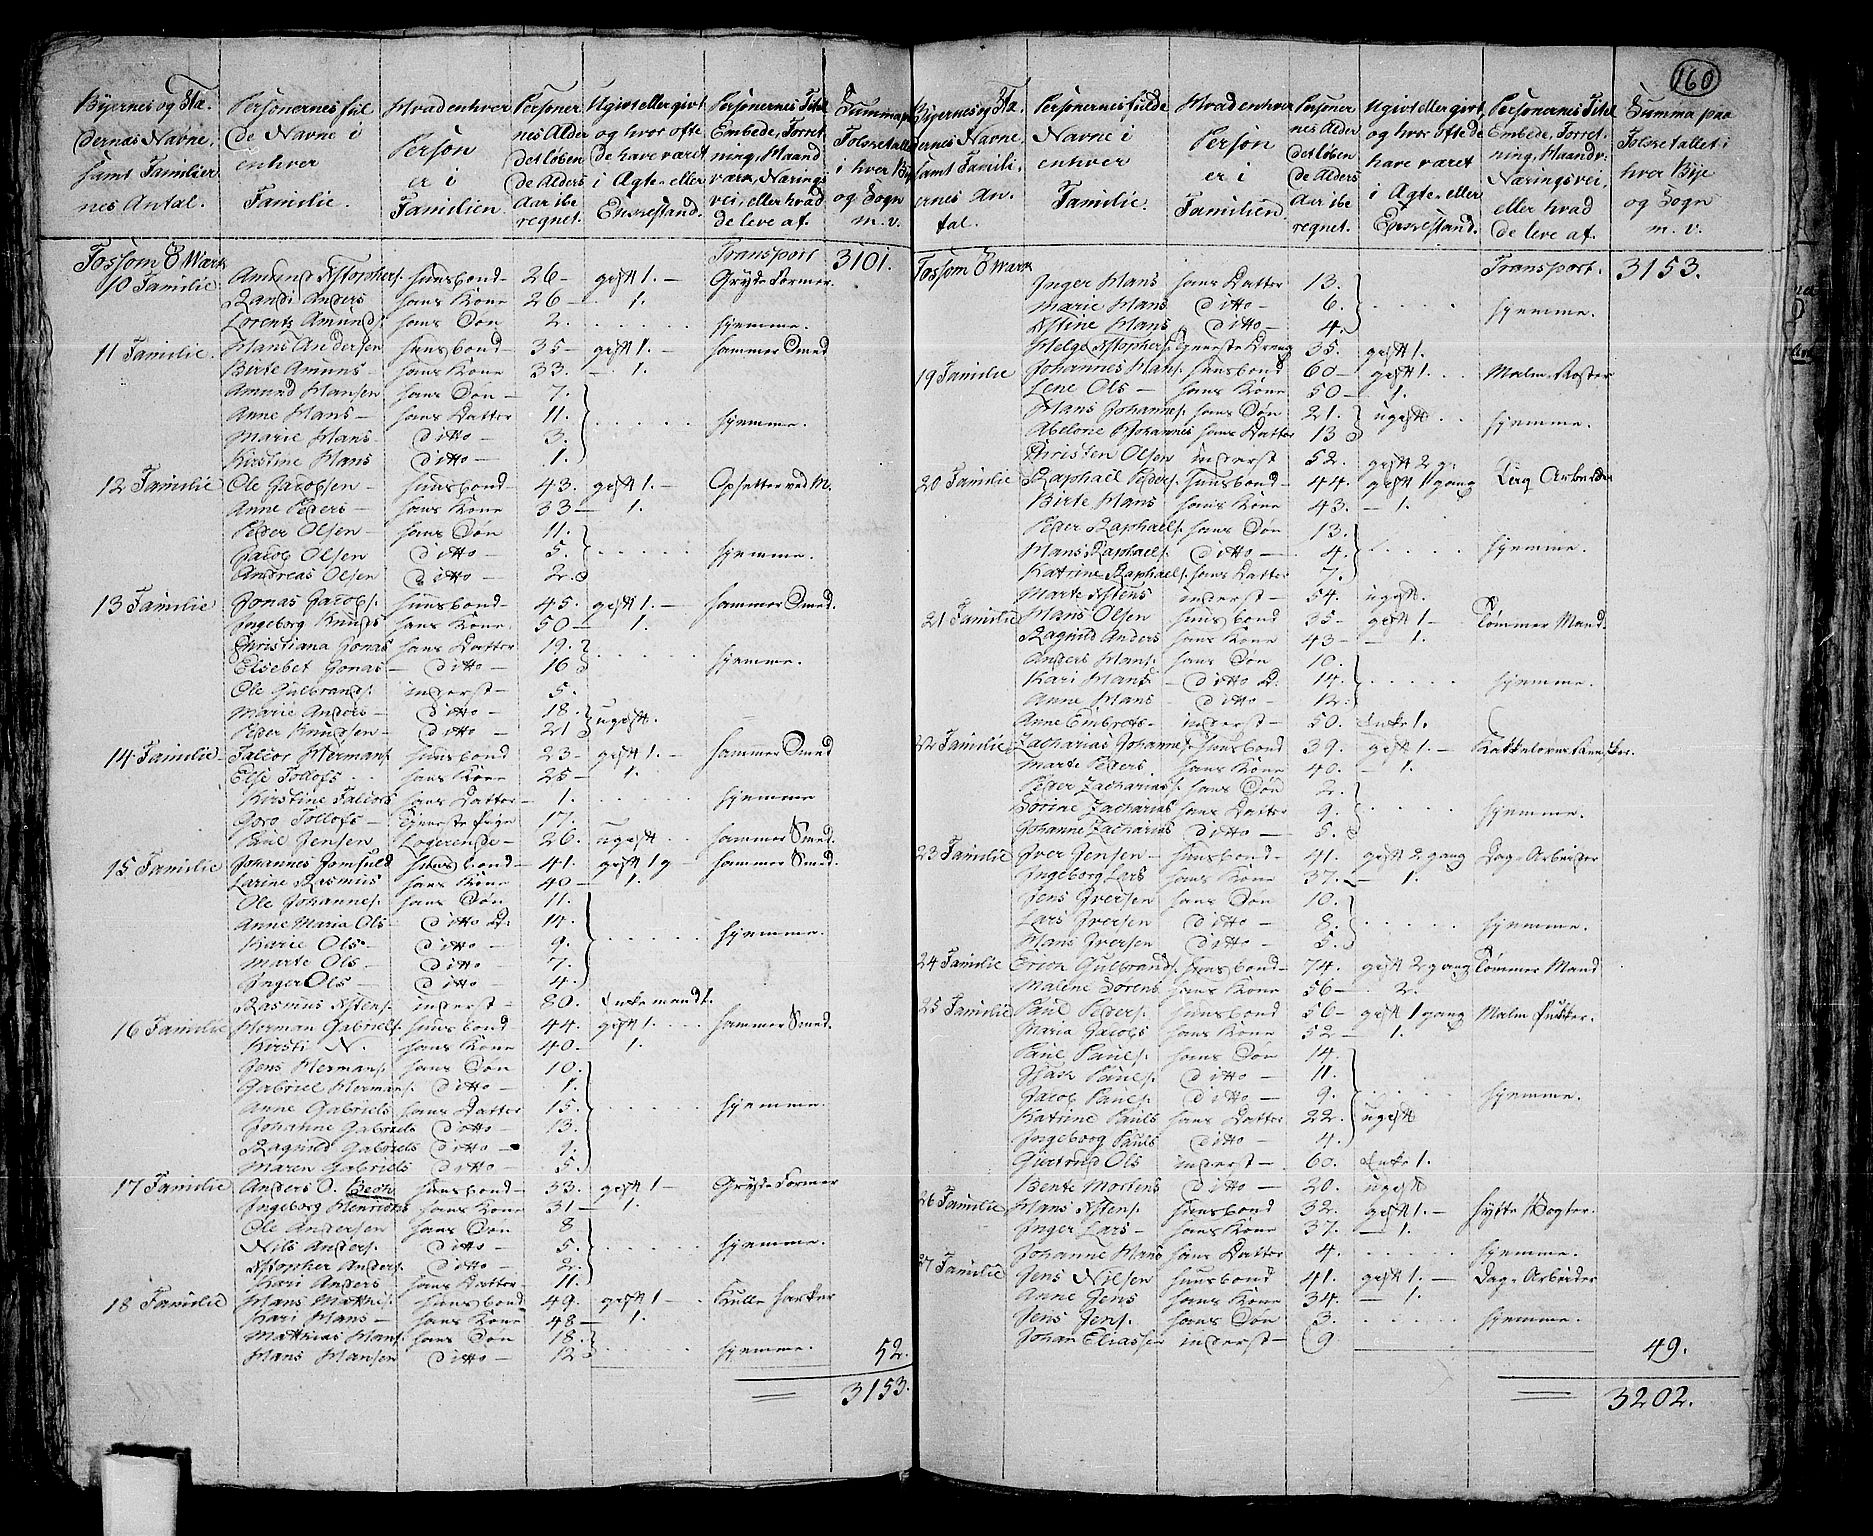 160
Byernes og Stæ- Personernes ful- Hvad enhver Personer- Ugivt eller givt Personernes Titel Summa paa
dernes Navne, de Navne i Person nes Alder og hvor ofte Embede, Forret- Folketallet
samt Familier- enhver er i det løben- de have været ning, Haand- i hver Bye
nes Antal. Familie. Familien. de Alders i Ægte- eller værk, Nærings- og Sogn
Aar ibe- Enkestand. vei, eller hvad m. v.
regnet. de leve af.
Fossom Værk Transport 3101.
10 Familie Amund Kstophers. Huusbond 26 gift 1. Gryde Former
Randi Anders hans Kone 26 — 1.
Lorentz Amunds. hans Søn 2. hjemme.
11 Familie Hans Andersen Huusbond 35 gift 1. Hammer Smed
Birte Amuns hans Kone 33. — 1.
Amund Hansen hans Søn 7.
Anne Hans hans Datter 11.
Marie Hans ditto 3. hjemme.
Kirstine Hans ditto 1.
12 Familie Ole Jacobsen Huusbond 43. gift 1. Opsetter ved M.
Anne Peders hans Kone 33 — 1.
Peder Olsen hans Søn 11.
Jacob Olsen ditto 5. hjemme.
Andreas Olsen ditto 2.
13 Familie Jonas Jacobs. Huusbond 45. gift 1. Hammer Smed.
Ingeborg Knuds hans Kone. 50 — 1.
Christiana Jonas hans Datter 19.
Elsebet Jonas ditto 16 hjemme.
Ole Gulbrands. inderst 5.
Marie Anders ditto 18.
Peder Knudsen ditto 21 ugift.
14 Familie Falcor Hermans. Huusbond 23 gift 1. Hammer Smed
Else Tollofs hans Kone 25 — 1.
Kirstine Falcors hans Datter 1. hjemme
Goro Tollofs Tjeneste Pige 17.
Paul Jensen Logerende 26. ugift Hammer Smed.
15 Familie Johannes Jomfuld Huusbond 41. gift 1 g Hammer Smed.
Larine Rasmus hans Kone 40 — 1.
Ole Johannes. hans Søn 11.
Anne Maria Ols ditto D. 14.
Karie Ols ditto 9. hjemme.
Marte Ols ditto 7.
Inger Ols ditto 4.
Rasmus Kstens. inderst 80. Enkemand 1.
16 Familie Herman Gabriels. Huusbond 44. gift 1. Hammer Smed.
Kirsti N. hans Kone 40 — 1.
Jens Hermans. hans Søn 10.
Gabriel Hermans. ditto 1.
Anne Gabriels hans Datter 15. hjemme.
Johanne Gabriels ditto 13.
Ragnild Gabriels ditto 9.
Maren Gabriels ditto 5.
17 Familie Anders O. Bech Huusbond 33. gift 1 Gryde Former
Ingeborg Henrichs hans Kone 31 — 1.
Ole Andersen hans Søn 8
Nils Anders. ditto 5. hjemme.
Kstopher Anders. ditto 2.
Kari Anders hans Datter 11.
18 Familie Hans Mathis. Huusbond 49. gift 1 Kulle Harker
Kari Hans hans Kone 48 — 1.
Matthias Hans. hans Søn 18.
Hans Hansen ditto 12 hjemme. 52.
3153.
Byernes og Stæ- Personernes fulde Hvad enhver Personer- Ugivt eller givt, Personernes Titel Summa paa
dernes Navne, Navne i Person nes Alder og hvor ofte de Embede, Forret- Folketallet i
samt Famili- enhver er i det løben- have været ning, Haandv. hver Bye
ernes An- Familie. Familien. de Alders i Ægte- eller Næringsvei, og Sogn
tal. Aar ibe- Enkestand. eller hvad m. v.
regnet. de leve af.
Fossom Værk Transport. 3153.
Inger Hans hans Datter 13.
Marie Hans ditto 6. hjemme.
Kstine Hans ditto 4.
Helge Kstophers. Tjeneste Dreng 35. gift 1.
19 Familie Johannes Hans. Huusbond 60 gift 1. Malm Roster
Lene Ols hans Kone 50 — 1.
Hans Johannes. hans Søn 21. ugift
Abelone Johannes hans Datter 13 hjemme.
Christen Olsen inderst 52. gift 2 g.
20 Familie Raphael Peders. Huusbond 44. gift 1 gang Dag Arbeider
Birte Hans hans Kone 43. — 1.
Peder Raphaels. hans Søn 13.
Hans Raphaels. ditto 4. hjemme.
Katrine Raphaels. hans Datter 7.
Marte Kstens inderst 54. ugift.
21 Familie Hans Olsen Huusbond 35 gift 1 Tømmer Mand.
Ragnild Anders hans Kone 43 — 1.
Anders Hans. hans Søn 10.
Kari Hans ditto D. 14. hjemme.
Anne Hans ditto 12.
Anne Embrets inderst 50. Enke 1.
22 Familie Zacharias Johannes. Huusbond 39. gift 1.
Marte Peders hans Kone 40. — 1.
Peder Zacharias. hans Søn 2.
Sørine Zacharias hans Datter 9. hjemme.
Johanne Zacharias ditto 5.
23 Familie Iver Jensen Huusbond 41. gift 2 gang Dag-Arbeider
Ingeborg Lars hans Kone 37. — 1.
Jens Iversen hans Søn 10.
Lars Iversen ditto 8. hjemme.
Hans Iversen ditto 5.
24 Familie Erich Gulbrands. Huusbond 74. gift 2 gang Tømmer Mand
Malene Sørens hans Kone 56 2.
25 Familie Paul Peders. Huusbond 56 gift 1 gang Malm Pukker.
Maria Jacobs hans Kone 52 — 1.
Paul Pauls. hans Søn 14.
Isach Pauls. ditto 11.
Jacob Pauls. ditto 9. hjemme.
Katrine Pauls hans Datter 22. ugift
Ingeborg Pauls ditto 4.
Giertrud Ols inderst 60. Enke 1.
Bente Mortens ditto 20. ugift
26 Familie Hans Kstens. Huusbond 32. gift 1. Hytte Vogter.
Inger Lars hans Kone 37. — 1.
Johanne Hans hans Datter 4. hjemme.
27 Familie Jens Nilsen Huusbond 41. gift 1. Dag-Arbeider
Anne Jens hans Kone 34. — 1.
Jens Jens. hans Søn 3. hjemme.
Johan Eliassen inderst 9 49.
3202.